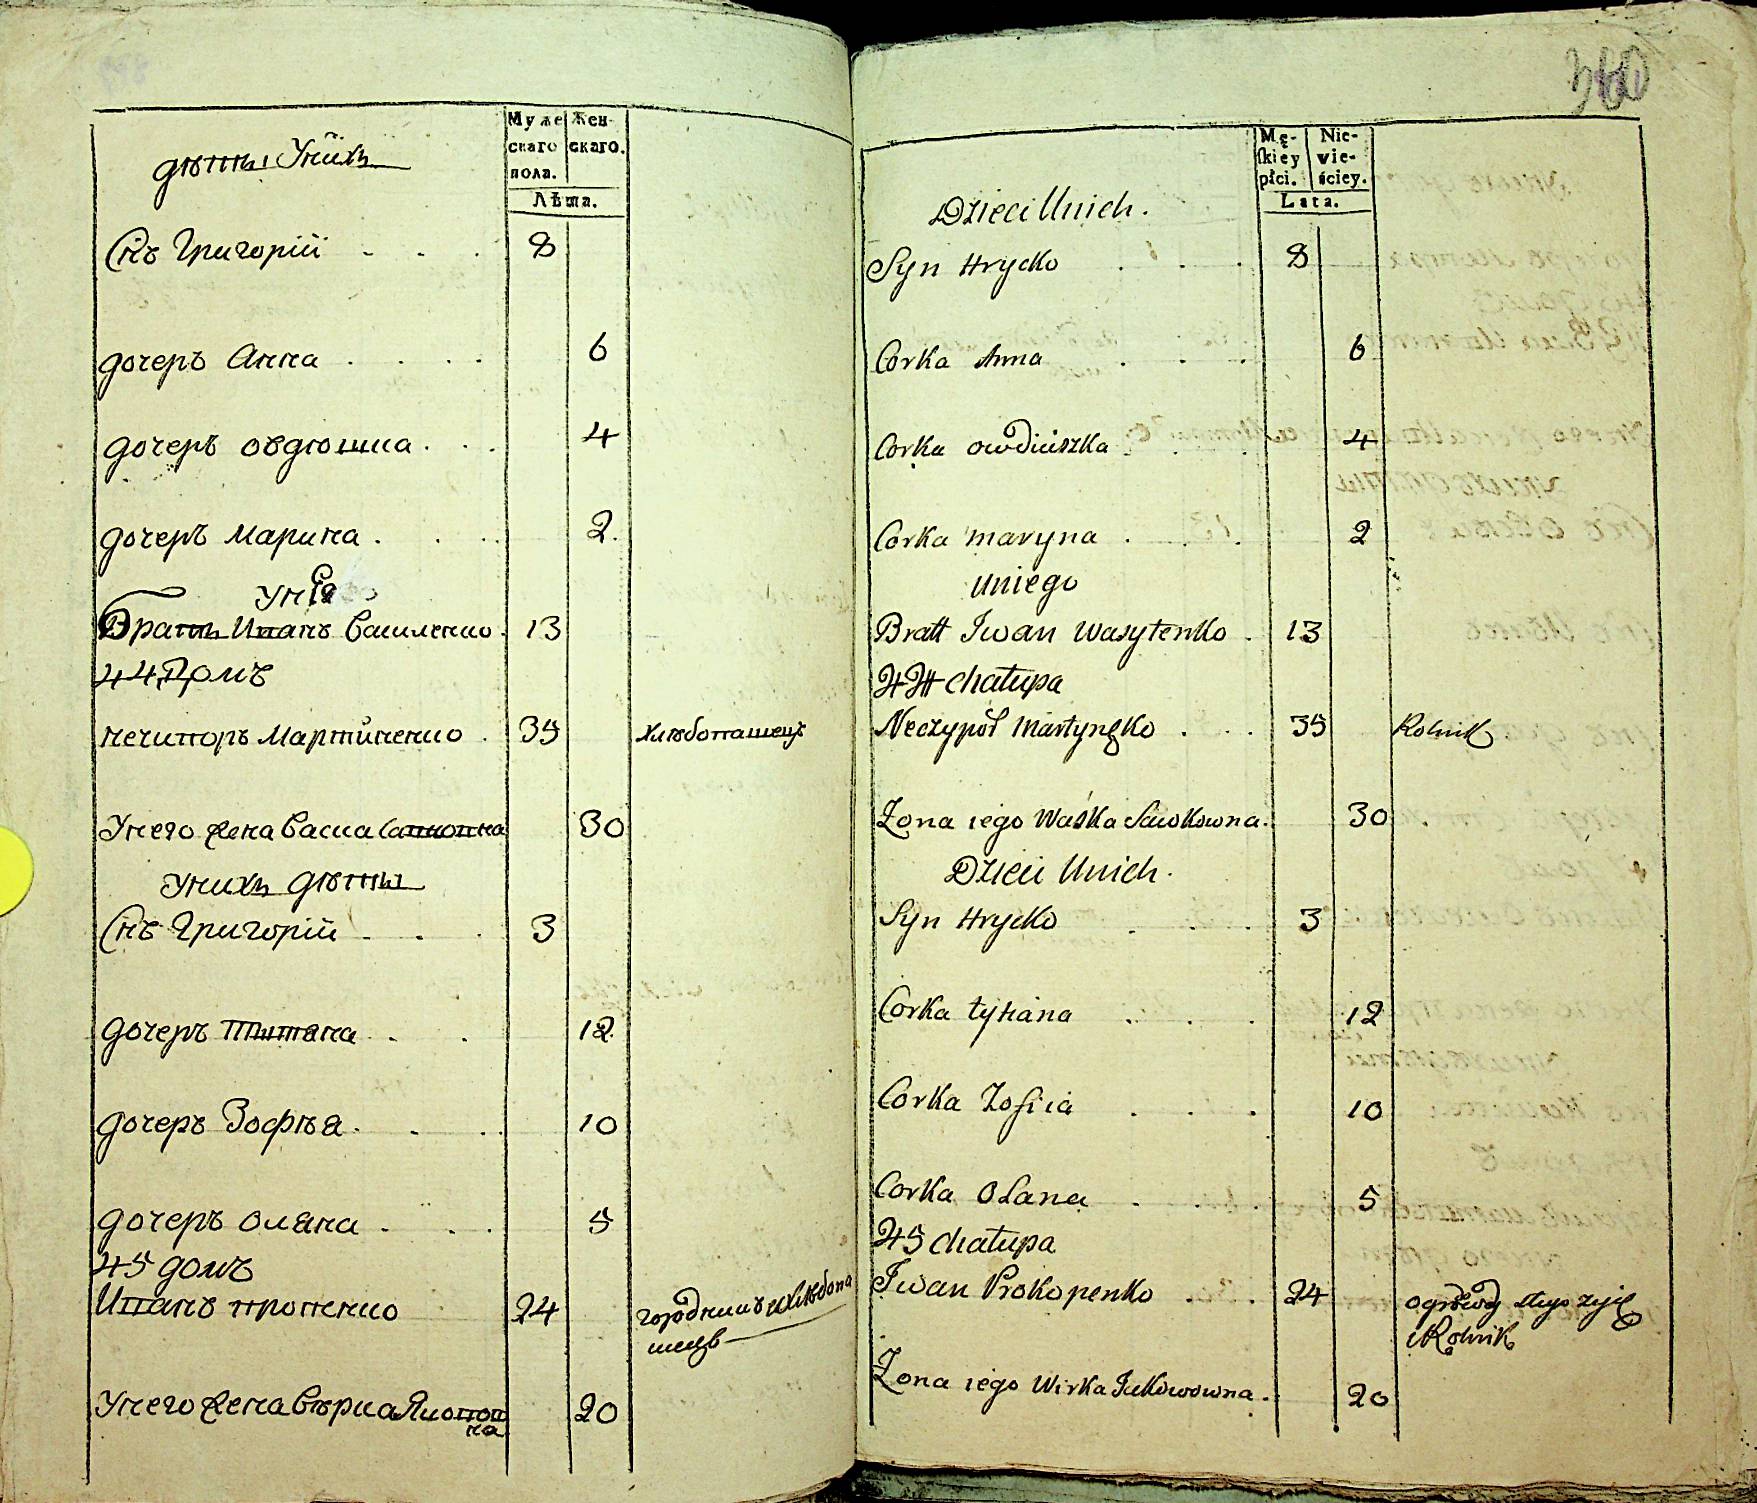 Муже Жен-
скаго скаго.
пола.
Лѣта.
дѣти Унихъ
Снъ Григорій . . . 8
дочеръ Анна . . . . 6
дочеръ овдюшка . . . 4
дочеръ Марина . . . 2.
Братъ Иванъ Василенко . 13
44 Домъ
нечипоръ Мартиненко . 35 хлѣбопашецъ
Унего жена Васка Савковна 30
Унихъ дѣти
Снъ Григорій . . . 3
дочеръ Титана . . 12
дочеръ Зофѣя . . . 10
дочеръ оляна . . . 5
45 домъ
Иванъ прокопенко 24 городникъ и хлѣбопа
шецъ
Унего жена Вѣрка Яковов
на 20
360
Mę- Nie-
ſkiey wie-
płci. ściey.
Lata.
Dzieci Unich.
Syn Hrycko . . . 8
Corka Anna . . . 6
Corka owdiuszka . . . 4
Corka maryna . . . 2
Uniego
Bratt Iwan Wasylenko . 13
44 chałupa
Neczypoł Martynęko . . . 35 Rolnik
Żona iego Waska Sawkowna . 30
Dzieci Unich.
Syn Hrycko . . . 3
Corka tytiana . . . 12
Corka Zofiia . . . 10
Corka Olana . . . 5
45 chałupa
Iwan Prokopenko . . . 24
i Rolnik
Żona iego Wirka Jakowowna . 20